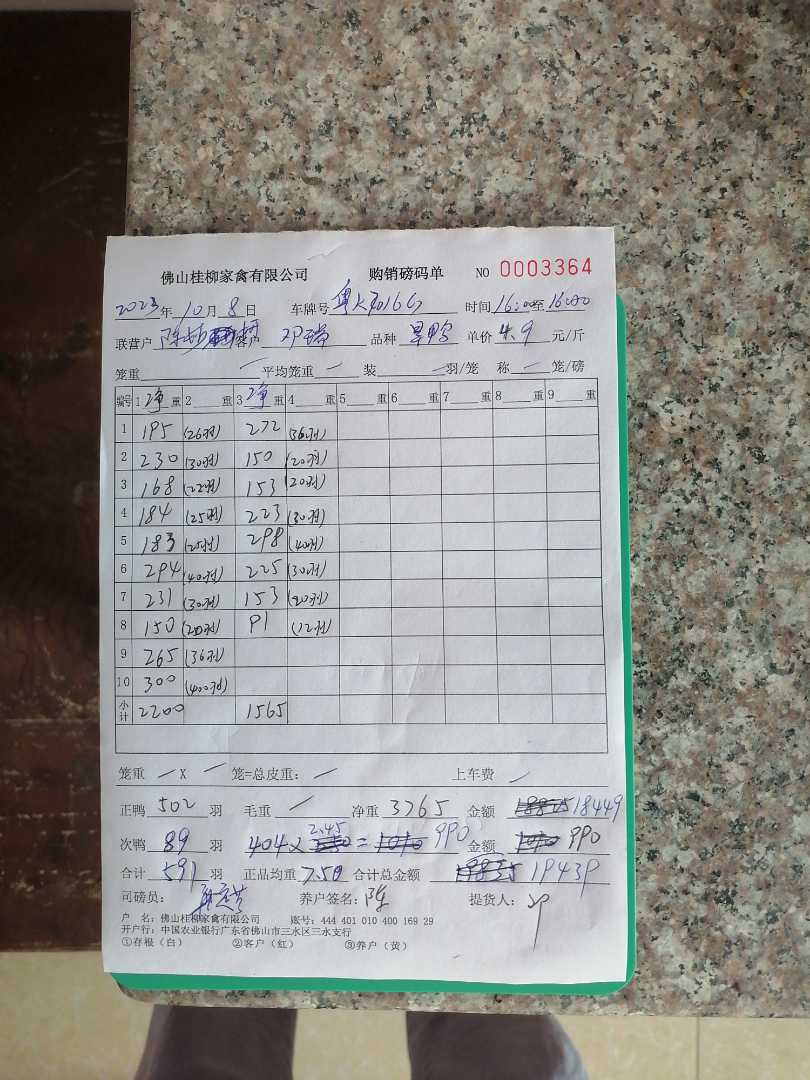 佛山桂柳家禽有限公司 购销磅码单 NO 0003364
2023年10月8日 车牌号 时间16:00至16:00
联营户 陈 客户 邓 品种 旱鸭 单价 4.9 元/斤
笼重 一 平均笼重 一 装 一 羽/笼 称 一 笼/磅
编号 1净重 2 重 3净重 4 重 5 重 6 重 7 重 8 重 9 重
1 195 (26羽) 272 (36羽)
2 230 (30羽) 150 (20羽)
3 168 (22羽) 153 (20羽)
4 184 (25羽) 223 (30羽)
5 183 (25羽) 298 (40羽)
6 294 (40羽) 225 (30羽)
7 231 (30羽) 153 (20羽)
8 150 (20羽) 91 (12羽)
9 265 (36羽)
10 300 (40羽)
小计 2200 1565
笼重 一 X 一 笼=总皮重: 一 上车费 一
正鸭 502 羽 毛重 一 净重 3765 金额 18449
次鸭 89 羽 404× 2.45 = 990 金额 990
合计 591 羽 正品均重 7.50 合计总金额 19439
司磅员: 养户签名: 陈 提货人: 邓
户 名: 佛山桂柳家禽有限公司 账号: 444 401 010 400 169 29
开户行: 中国农业银行广东省佛山市三水区三水支行
①存根(白) ②客户(红) ③养户(黄)